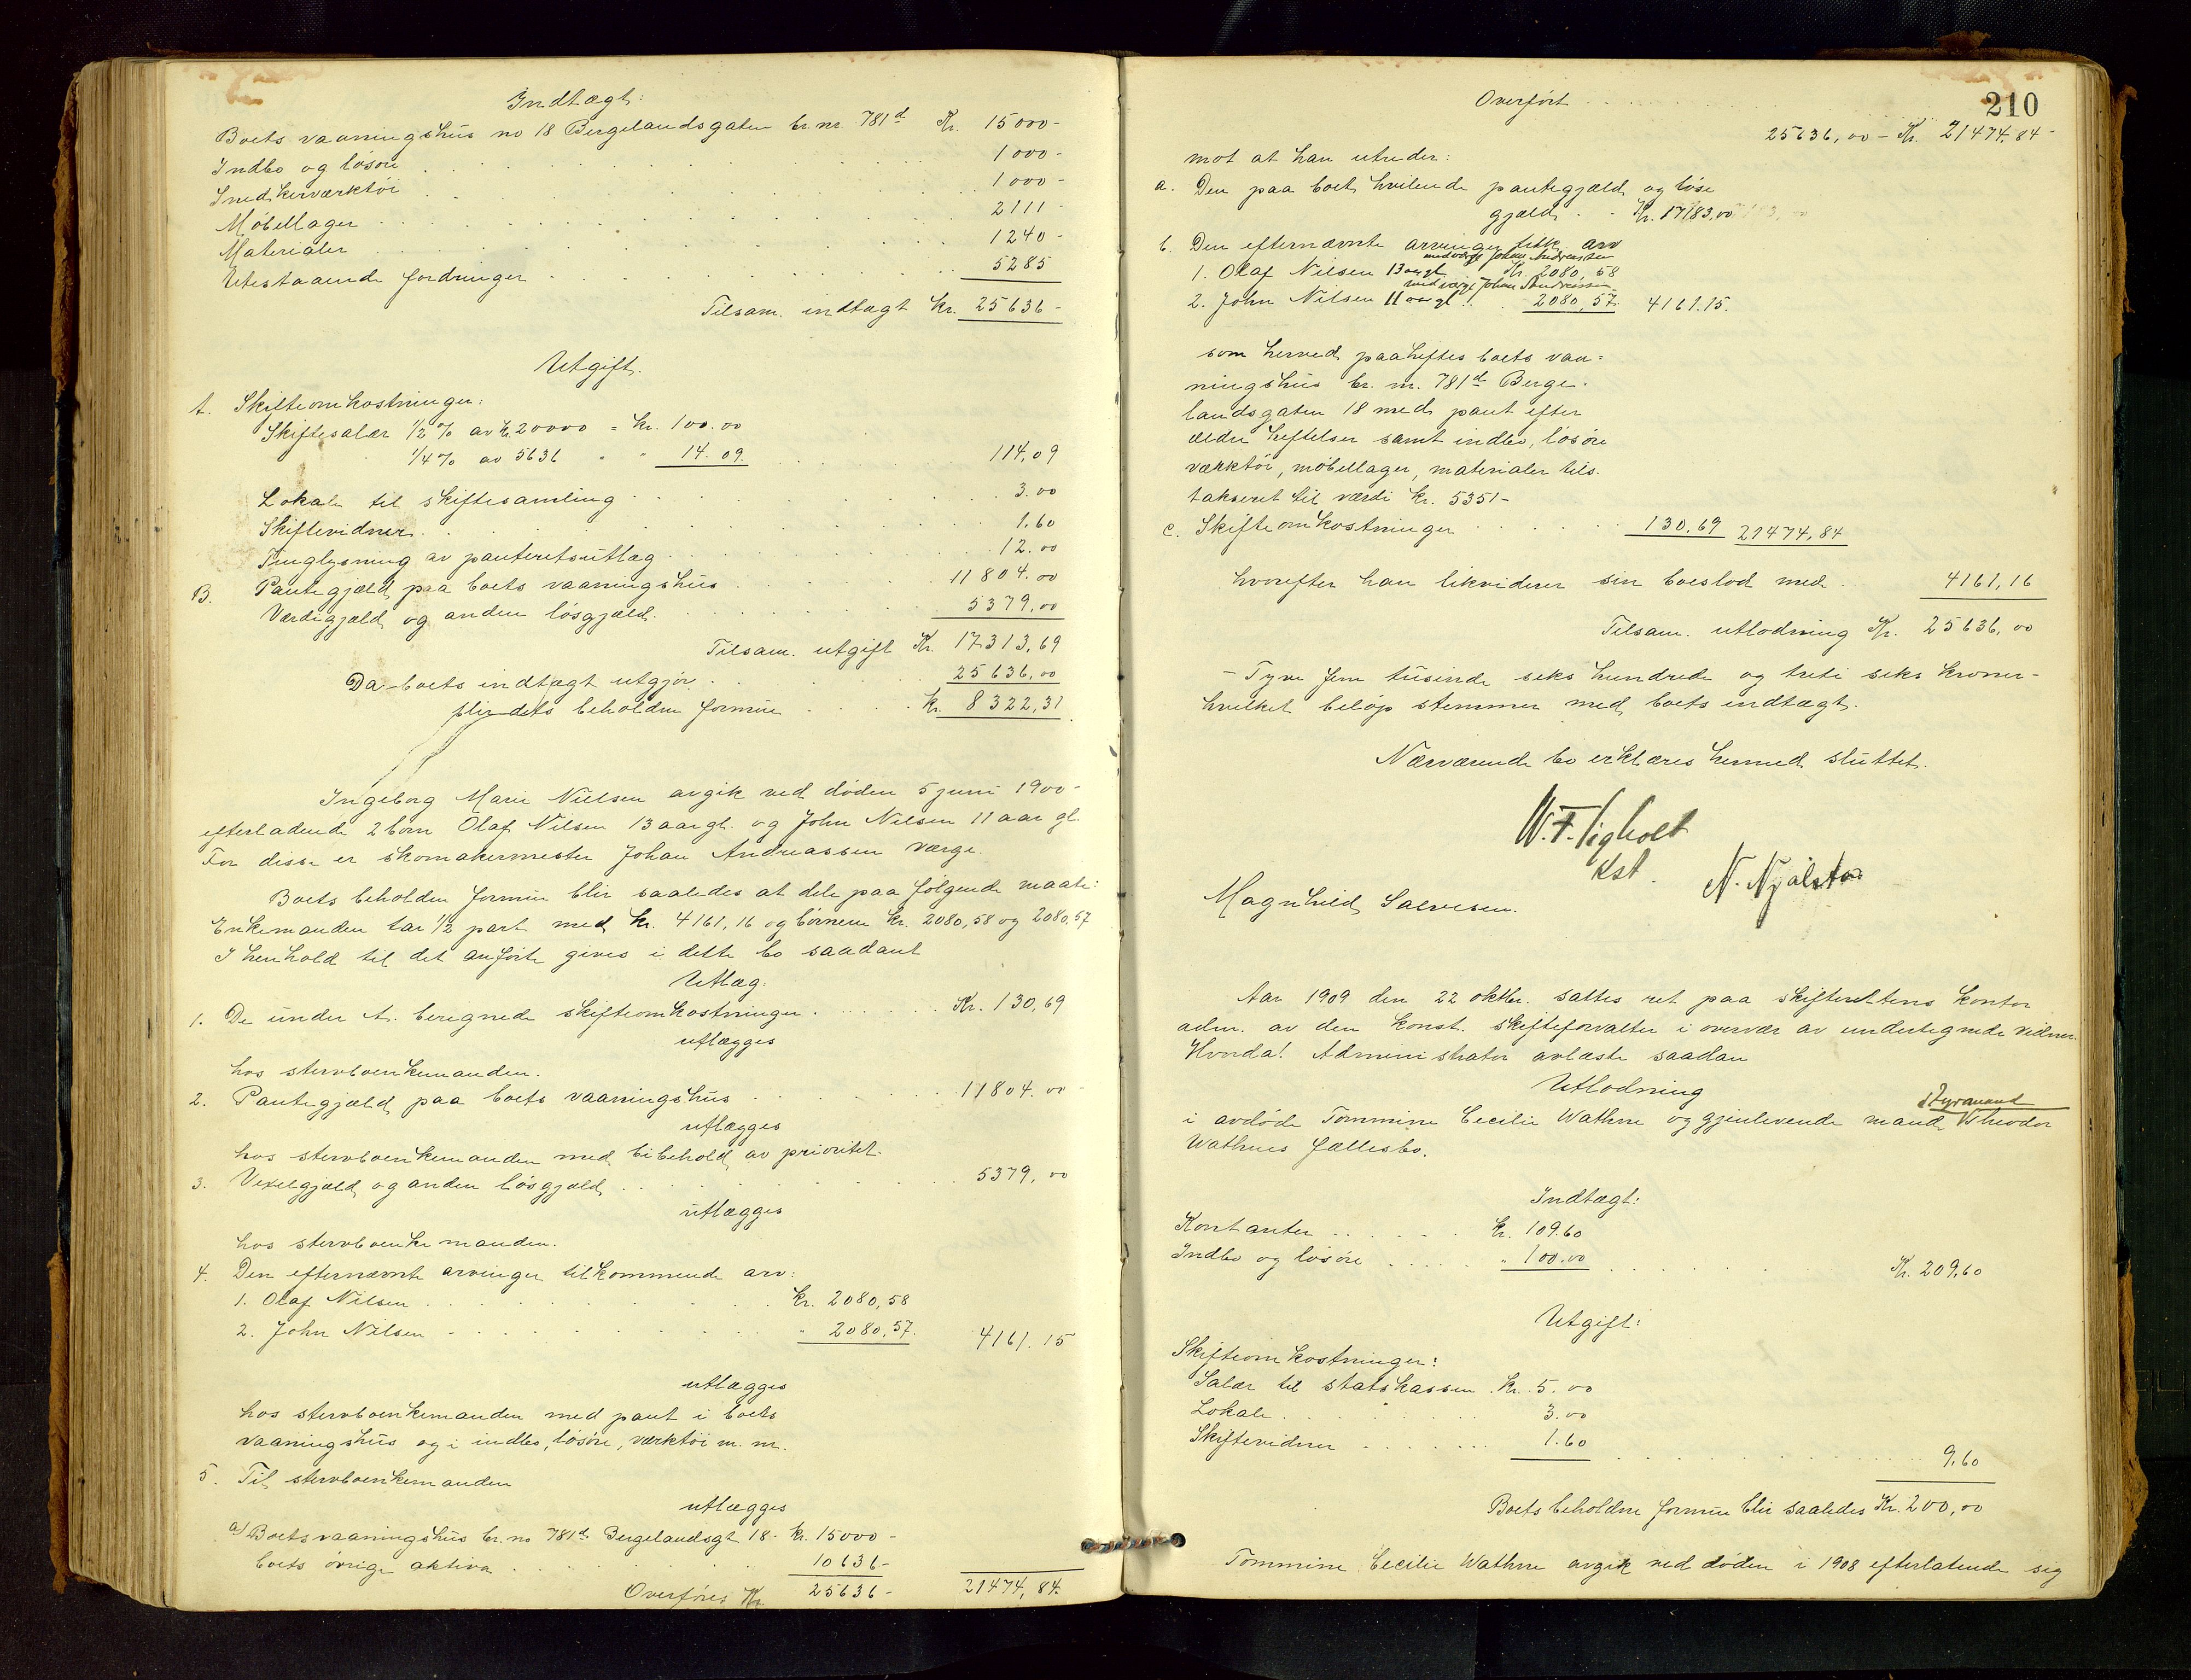 Indtægt:
Boets vaaningshus no 18 Bergelandsgaten br. nr. 781d Kr. 15000-
Indbo og løsøre . . . 1000-
Snedkerværktøi . . . 1000-
Møbellager . . . 2111-
Materialer . . . 1240-
Utestaaende fordringer . . . 5285
Tilsam. indtægt kr. 25636-
Utgift.
A. Skifteomkostninger:
Skiftesalær 1/2 % av kr. 20000 = kr. 100.00
1/4 % av 5636 " " 14.09 . . . 114,09
Lokale til skiftesamling . . . 3.00
Skiftevidner . . . 1.60
Tinglysning av panteretsutlæg . . . 12.00
B. Pantegjæld paa boets vaaningshus . . . 11804.00
Værdigjæld og anden løsgjæld . . . 5379,00
Tilsam. utgift Kr. 17313,69
Da boets indtægt utgjør . . . 25636,00
blir dets beholdne formue . . . kr. 8322,31
Ingeborg Marie Nielsen avgik ved døden 5 juni 1900-
efterladende 2 børn Olaf Nilsen 13 aar gl. og John Nilsen 11 aar gl.
For disse er skomakermester Johan Andreassen værge.
Boets beholden formue blir saaledes at dele paa følgende maate:
Enkemanden tar 1/2 part med kr. 4161,16 og børnene kr. 2080,58 og 2080,57
I henhold til det anførte gives i dette bo saadant
Utlæg:
1. De under A. beregnede skifteomkostninger . . . Kr. 130,69
utlægges
hos stervboenkemanden.
2. Pantegjæld paa boets vaaningshus . . . 11804.00-
utlægges
hos stervboenkemanden med bibehold av prioritet.
3. Vexelgjæld og anden løsgjæld . . . 5379,00
utlægges
hos stervboenkemanden.
4. Den efternævnte arvinger tilkommende arv:
1. Olaf Nilsen . . . kr. 2080,58
2. John Nilsen . . . " 2080,57. 4161.15
utlægges
hos stervboenkemanden med pant i boets
vaaningshus og i indbo, løsøre, værktøi m. m.
5. Til stervboenkemanden
utlægges
a) Boets vaaningshus br. no 781d Bergelandsgt 18- kr. 15000-
boets øvrige aktiva . . . 10636-
Overføres Kr. 25636- 21474,84.
210
Overført . . .
25636,00- Kr. 21474,84-
mot at han utreder:
a. Den paa boet hvilende pantegjæld og løse
gjæld . . Kr. 17183,00
b. Den efternævnte arvinger tilk. arv
med værge Johan Andreassen
1. Olaf Nilsen 13 aar gl. Kr. 2080,58
med værge Johan Andreassen
2. John Nilsen 11 aar gl. . . 2080,57. 4161.15.
som herved paaheftes boets vaa=
ningshus br. nr. 781d Berge-
landsgaten 18 med pant efter
ældre heftelser samt indbo, løsøre
værktøi, møbellager, materialer tils.
takseret til værdi kr. 5351-
c. Skifteomkostninger . . . 130.69 21474,84
hvorefter han likviderer sin boeslod med . 4161,16
Tilsam. utlodning Kr. 25636,00
- Tyve fem tusinde seks hundrede og treti seks kroner-
hvilket beløp stemmer med boets indtægt.
Nærværende bo erklæres herved sluttet.
W. F.
kst.
N. Njålsto
Magnhild Salvesen.
Aar 1909 den 22 oktbr. sattes ret paa skifterettens kontor
adm. av den konst. skifteforvalter i overvær av undertegnede vidner.
Hvorda! Administrator avlæste saadan
Utlodning
styrmand
i avdøde Tommine Cecilie Wathne og gjenlevende mand Theodor
Wathnes fællesbo.
Indtægt:
Kontanter . . . kr. 109.60
Indbo og løsøre . . . " 100.00 . . . Kr. 209,60
Utgift:
Skifteomkostninger:
Salær til statskassen . Kr. 5.00
Lokale . . . 3.00
Skiftevidner . . . 1.60 . . . 9,60
Boets beholdne formue blir saaledes Kr. 200,00
Tommine Cecilie Wathne avgik ved døden i 1908 efterlatende sig